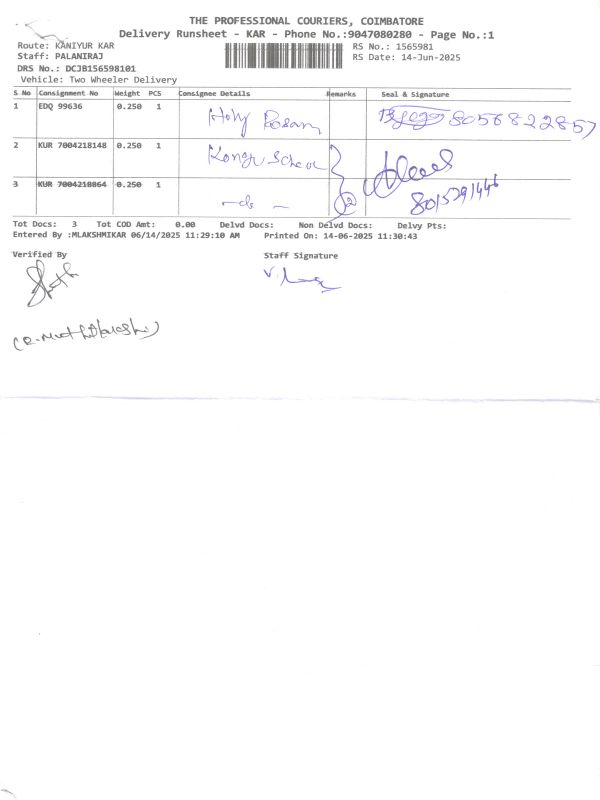 THE PROFESSIONAL COURIERS, COIMBATORE
Delivery Runsheet - KAR - Phone No.:9047080280 - Page No.:1
Route: KANIYUR KAR RS No.: 1565981
Staff: PALANIRAJ RS Date: 14-Jun-2025
DRS No.: DCJB156598101
Vehicle: Two Wheeler Delivery
S No Consignment No Weight PCS Consignee Details Remarks Seal & Signature
1 EDQ 99636 0.250 1 Holy Rosary 8056822857
2 KUR 7004218148 0.250 1 Kongu School
3 KUR 7004218864 0.250 1 -do -
Tot Docs: 3 Tot COD Amt: 0.00 Delvd Docs: Non Delvd Docs: Delvy Pts:
Entered By :MLAKSHMIKAR 06/14/2025 11:29:10 AM Printed On: 14-06-2025 11:30:43
Verified By Staff Signature